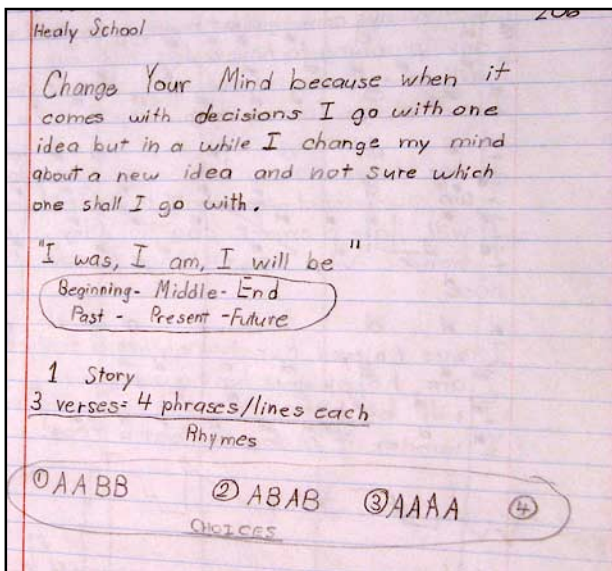 Healy School
Change Your Mind because when it
comes with decisions I go with one
idea but in a while I change my mind
about a new idea and not sure which
one shall I go with.
"I was, I am, I will be"
Beginning- Middle- End
Past - Present -Future
1 Story
3 verses= 4 phrases/lines each
Rhymes
① AABB ② ABAB ③ AAAA ④
CHOICES